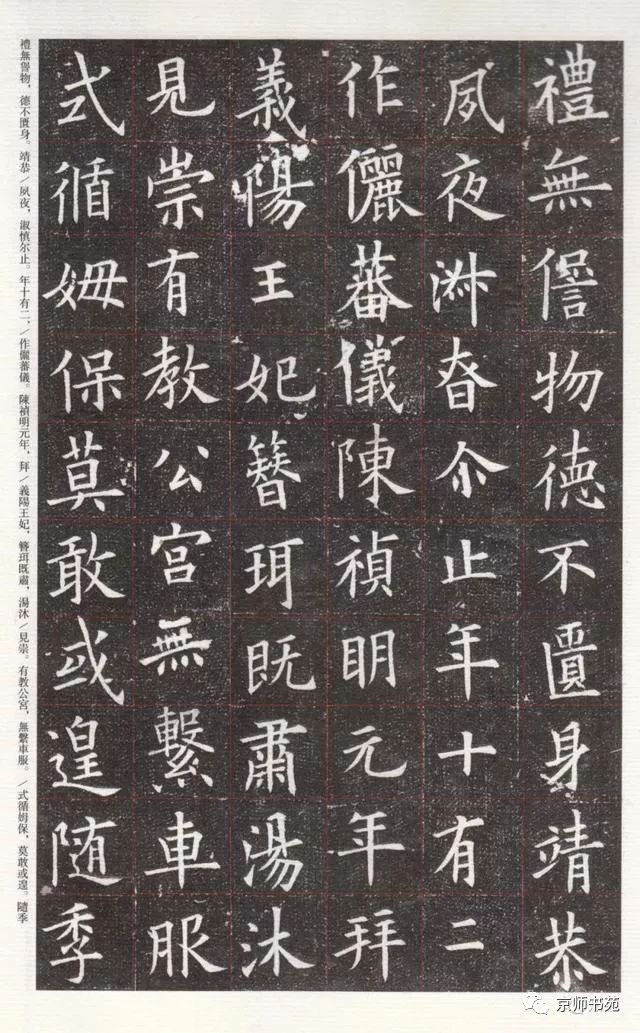 禮無諐物德不匱身靖恭
夙夜淋昚尒止年十有二
作儷蕃儀陳禎明元年拜
義陽王妃簪珥既肅湯沐
見崇有教公宮無繫車服
式循姆保莫敢或遑随季
禮無諐物，德不匱身。靖恭／夙夜，淑慎尔止。年十有二，／作儷蕃儀。陳禎明元年，拜／義陽王妃，簪珥既肅，湯沐／見崇。有教公宮，無繫車服。／式循姆保，莫敢或遑。隨季
京师书苑